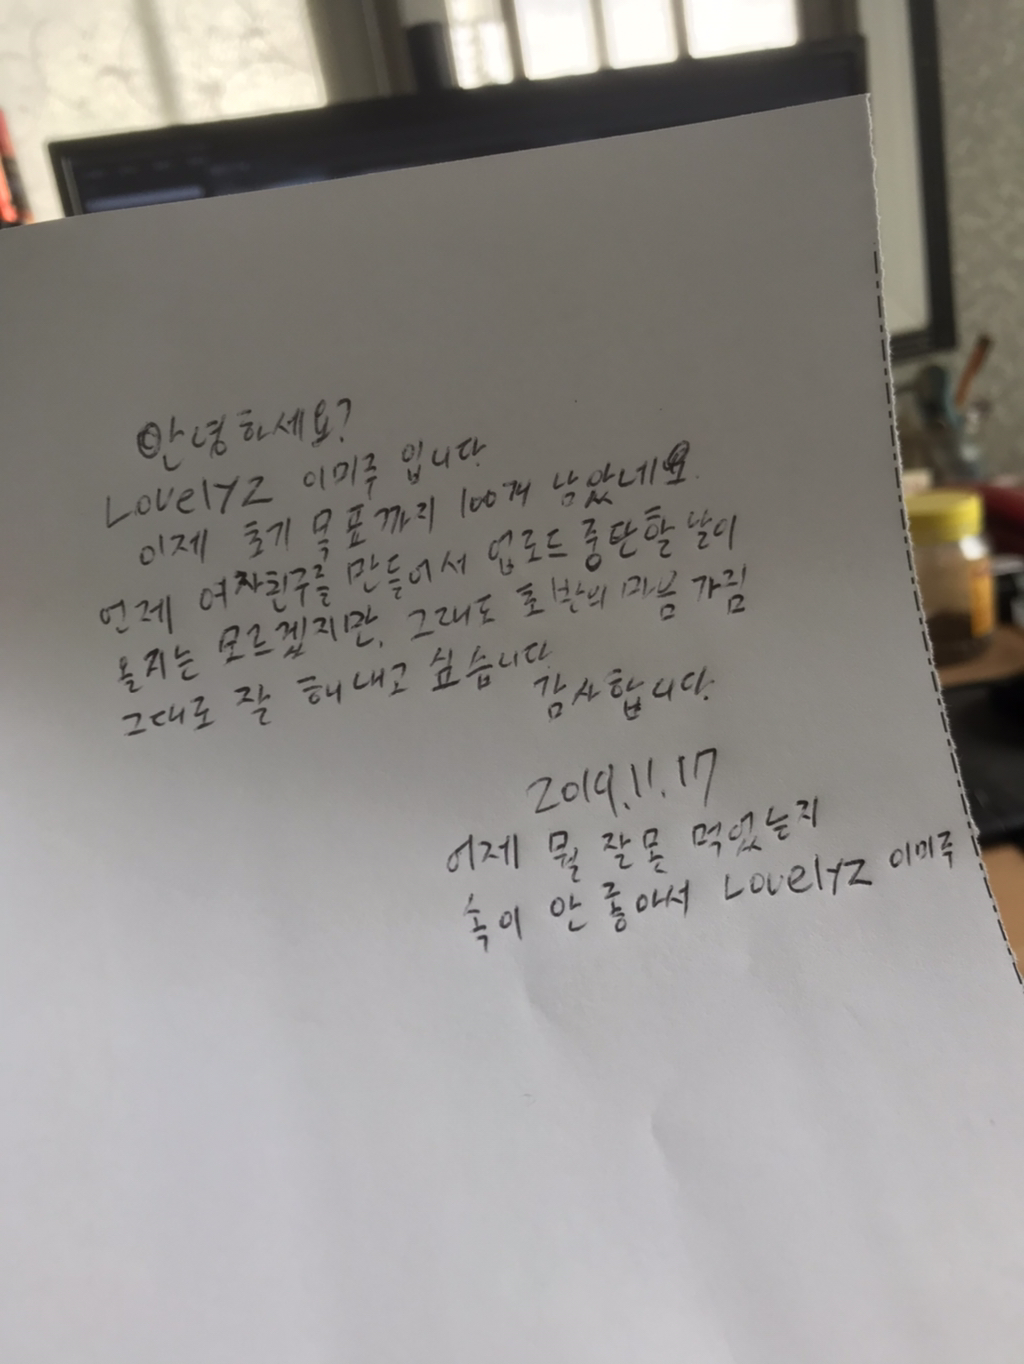 안녕하세요?
Lovelyz 이미주 입니다
이제 초기 목표까지 100개 남았네요.
언제 여자친구를 만들어서 업로드 중단할 날이
올지는 모르겠지만, 그래도 초반의 마음 가짐
그대로 잘 해내고 싶습니다
감사합니다.
2019.11.17
어제 뭘 잘못 먹었는지
속이 안 좋아서 Lovelyz 이미주